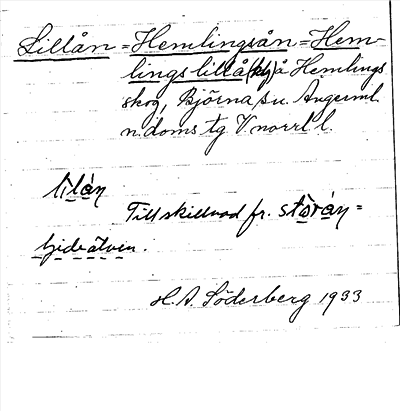 Lillån = Hemlingsån = Hem-
lingslillå(n) å Hemlings
skog, Björna sn. Ångerml.
n. doms tg V.norrl l.
lìlàn
Till skillnad fr. stòràn =
jideälven.
H. A. Söderberg 1933